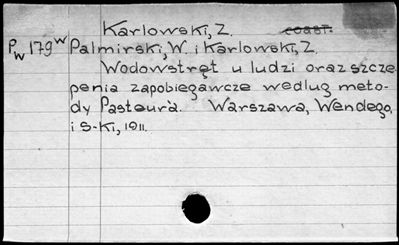 Karlowski, Z. coast.
Pw 179w Palmirski, W. i Karlowski, Z.
Wodowstręt u ludzi oraz szcze
penia zapobiegawcze wedlug meto-
dy Pasteur'a. Warszawa, Wendego,
i S-Ki, 1911.